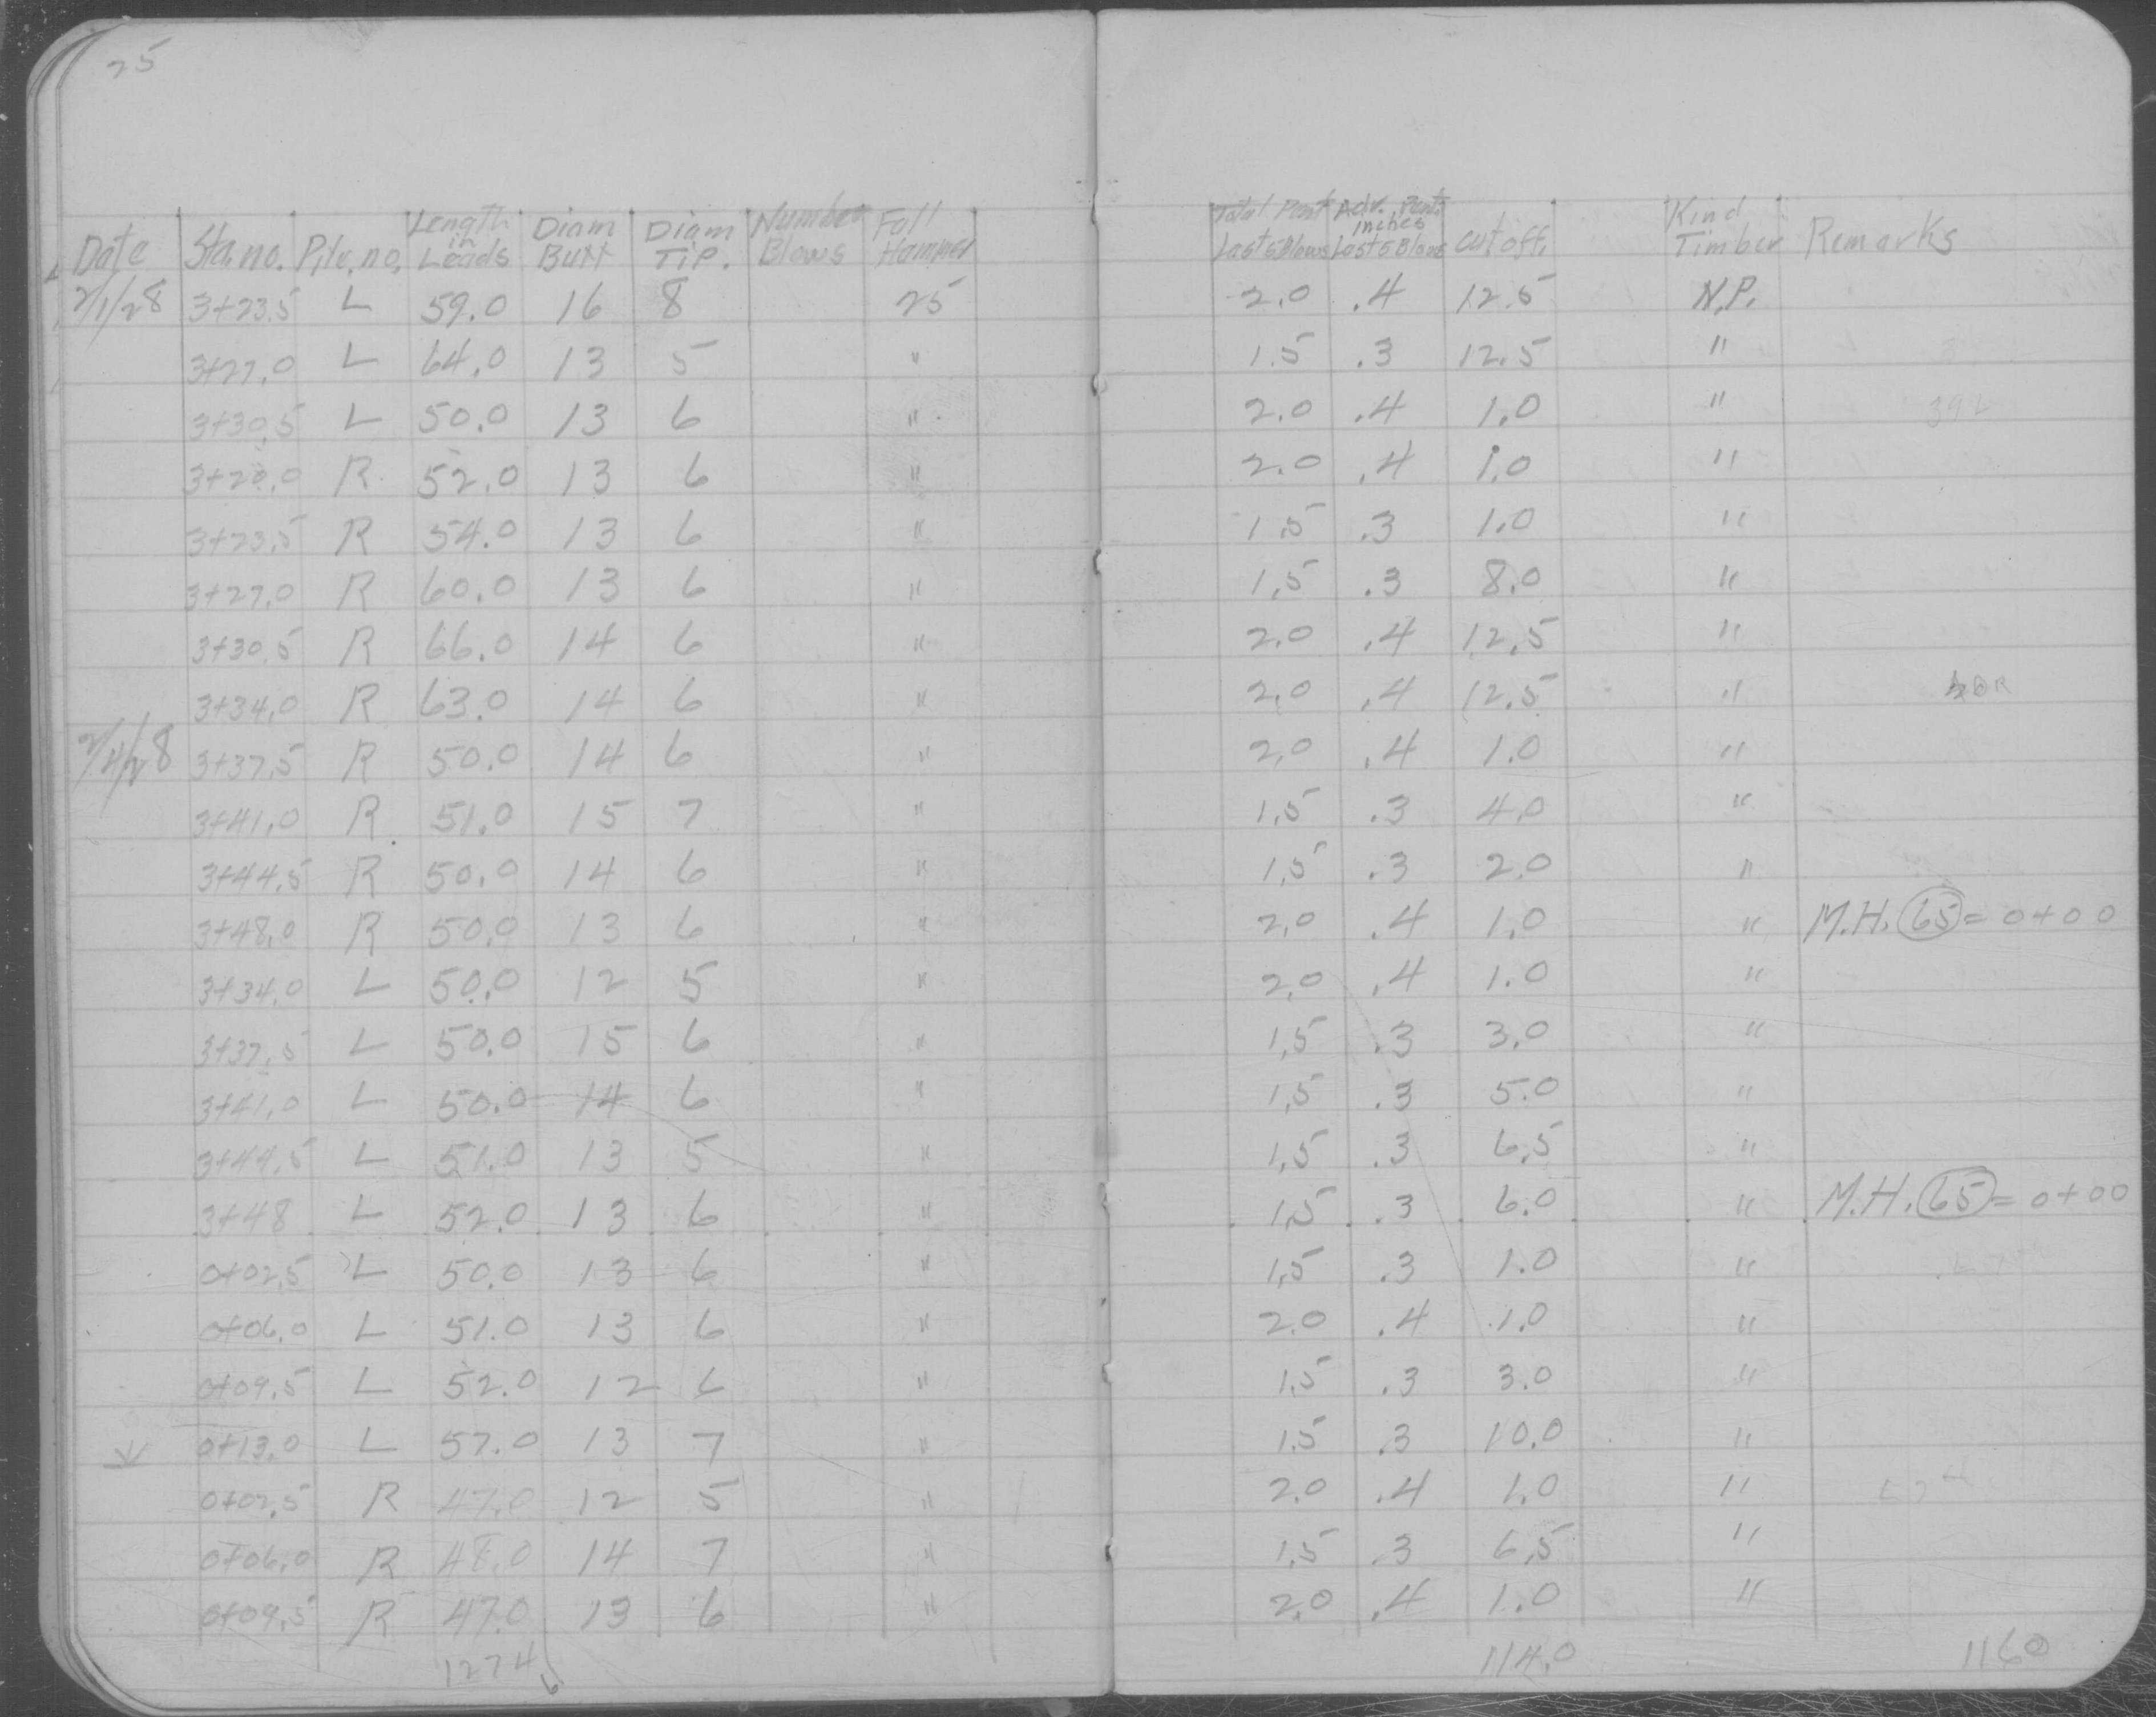 25
Date Sta.no. Pile.no. Length in Leads Diam Butt Diam Tip. Number Blows Fall Hammer Total Pent Last 5 Blows Adv. Pent. inches Last 5 Blows Cut off. Kind Timber Remarks
2/1/28 3+23.5 L 59.0 16 8 25 2.0 .4 12.5 N.P.
3+27.0 L 64.0 13 5 " 1.5 .3 12.5 "
3+30.5 L 50.0 13 6 " 2.0 .4 1.0 " 392
3+20.0 R 52.0 13 6 " 2.0 .4 1.0 "
3+23.5 R 54.0 13 6 " 1.5 .3 1.0 "
3+27.0 R 60.0 13 6 " 1.5 .3 8.0 "
3+30.5 R 66.0 14 6 " 2.0 .4 12.5 "
3+34.0 R 63.0 14 6 " 2.0 .4 12.5 "
2/4/28 3+37.5 R 50.0 14 6 " 2.0 .4 1.0 "
3+41.0 R 51.0 15 7 " 1.5 .3 4.0 "
3+44.5 R 50.0 14 6 " 1.5 .3 2.0 "
3+48.0 R 50.0 13 6 " 2.0 .4 1.0 " M.H. 65 = 0+00
3+34.0 L 50.0 12 5 " 2.0 .4 1.0 "
3+37.5 L 50.0 15 6 " 1.5 .3 3.0 "
3+41.0 L 50.0 14 6 " 1.5 .3 5.0 "
3+44.5 L 51.0 13 5 " 1.5 .3 6.5 "
3+48 L 52.0 13 6 " 1.5 .3 6.0 " M.H. 65 = 0+00
0+02.5 L 50.0 13 6 " 1.5 .3 1.0 "
0+06.0 L 51.0 13 6 " 2.0 .4 1.0 "
0+09.5 L 52.0 12 6 " 1.5 .3 3.0 "
0+13.0 L 57.0 13 7 " 1.5 .3 10.0 "
0+02.5 R 47.0 12 5 " 2.0 .4 1.0 "
0+06.0 R 48.0 14 7 " 1.5 .3 6.5 "
0+09.5 R 47.0 13 6 " 2.0 .4 1.0 "
1274 114.0 1160